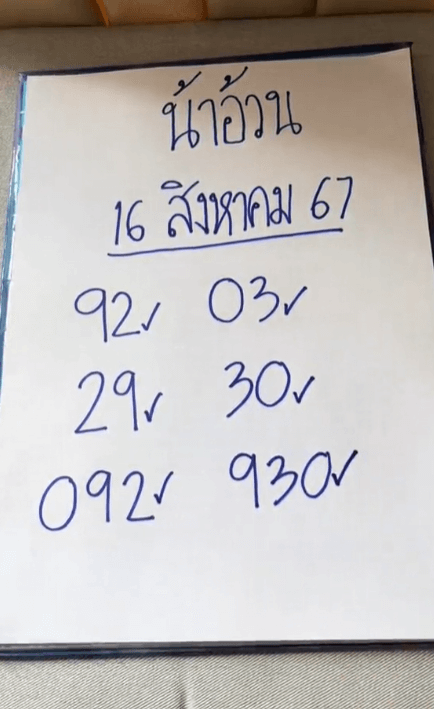 น้าอ้วน
16 สิงหาคม 67
92✓ 03✓
29✓ 30✓
092✓ 930✓